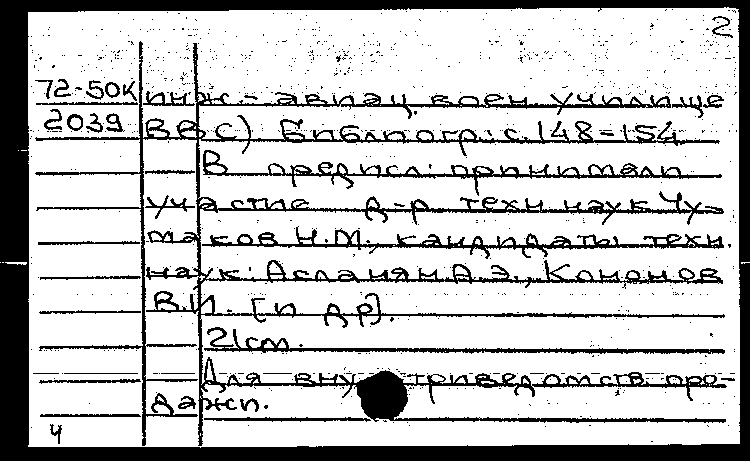 2
72-50К инж.- авиац. воен. училище
2039 ВВС) Библиогр.: с. 148-154
В предисл.: принимали
участие д-р техн. наук Чу-
маков Н.М., кандидаты техн.
наук: Асланян А.Э., Кононов
В.И. [и др].
21см.
Для внутриведомств. про-
дажи.
4